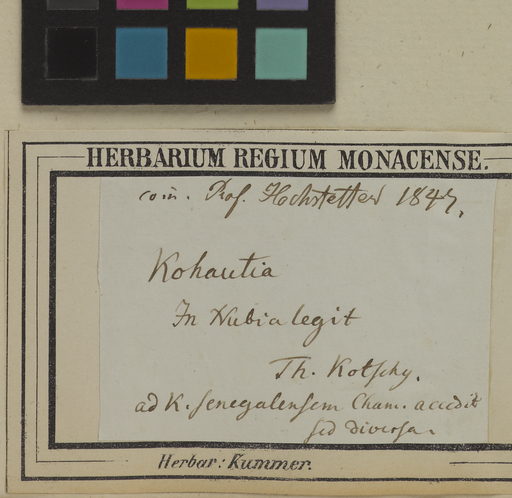 HERBARIUM REGIUM MONACENSE.
com. Prof. Hochstetter 1847.
Kohautia
In Nubia legit
Th. Kotschy.
ad K. senegalensem Cham. accedit
sed diversa.
Herbar: Kummer.